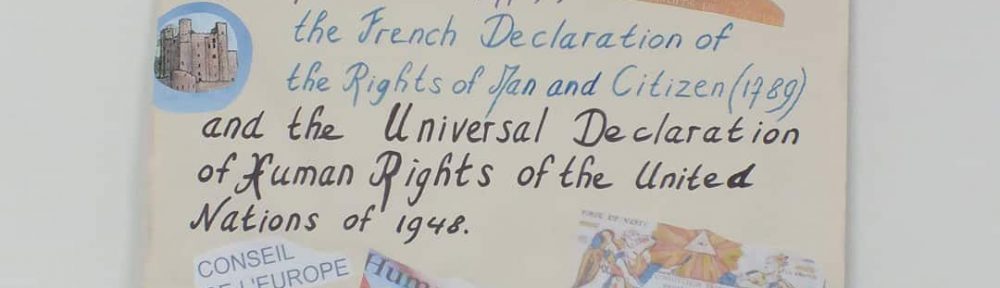 the French Declaration of
the Rights of Man and Citizen (1789)
and the Universal Declaration
of Human Rights of the United
Nations of 1948.
CONSEIL
L'EUROPE
Hum